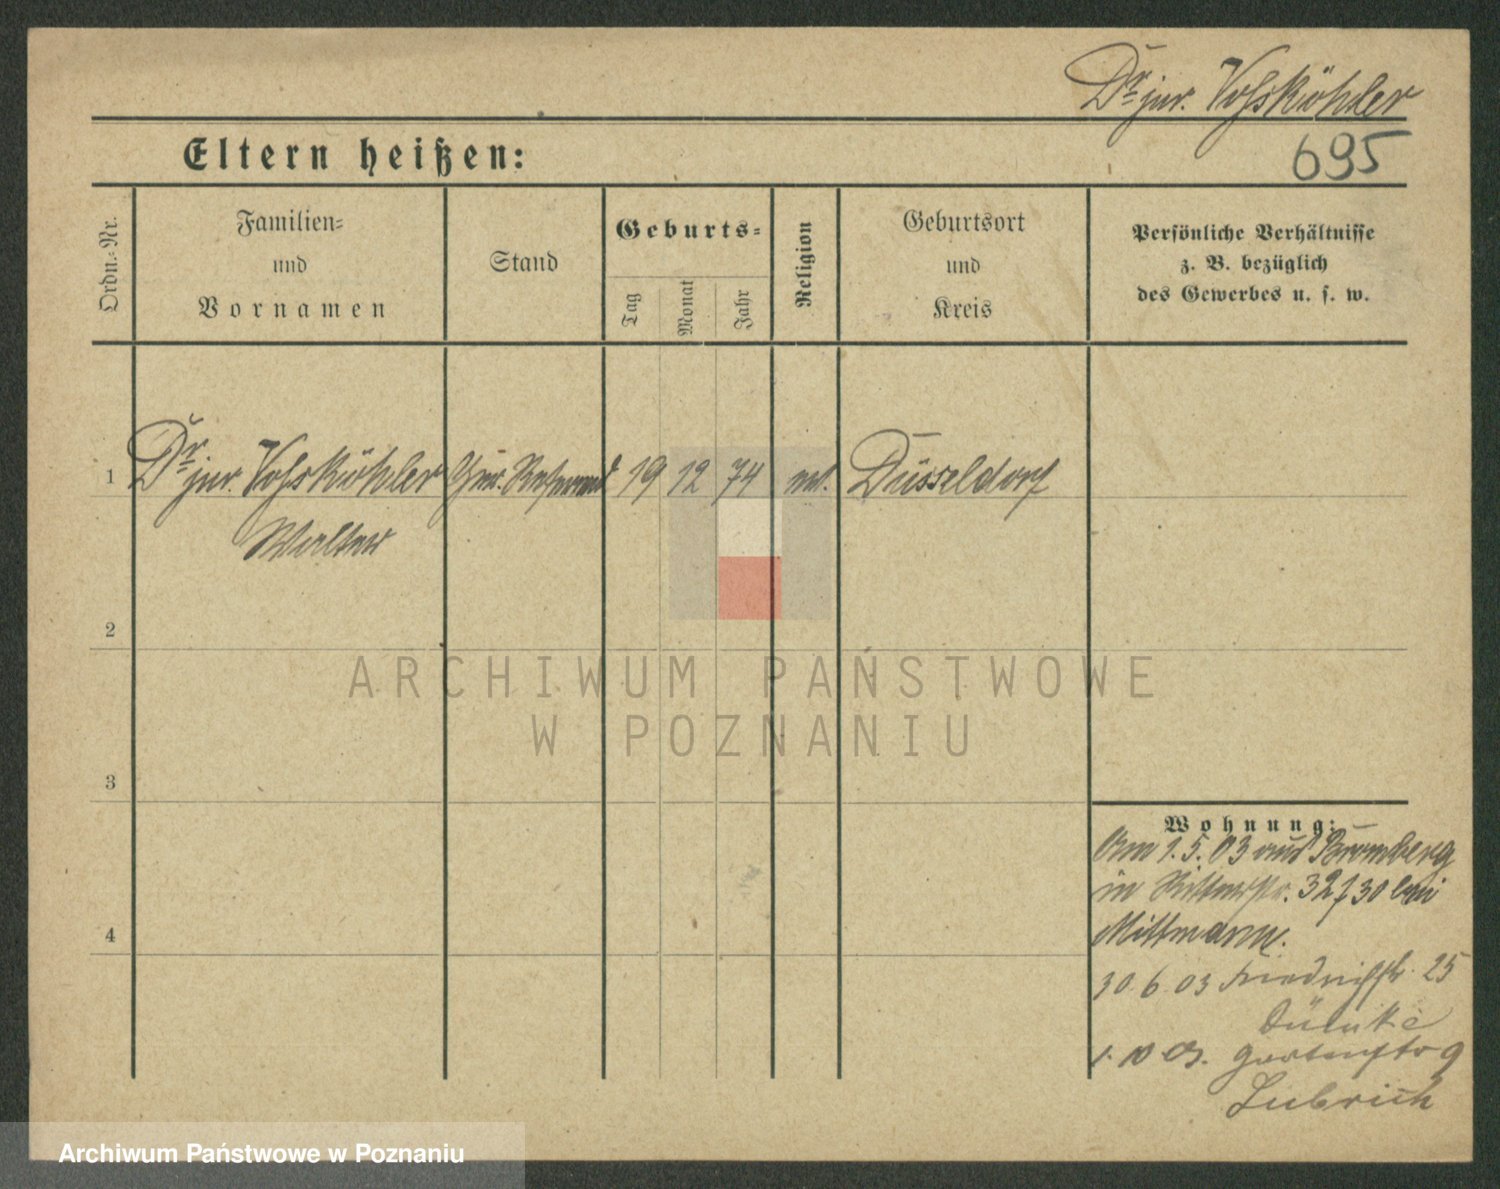 Dr jur. Voßköhler
695
Eltern heißen:
Ordn.-Nr.
Familien-
und
Vornamen
Stand
Geburts-
Tag
Monat
Jahr
Religion
Geburtsort
und
Kreis
Persönliche Verhältnisse
z. B. bezüglich
des Gewerbes u. s. w.
1 Dr jur. Voßköhler 19 12 74 Düsseldorf
Walter
2
3
4
ARCHIWUM PAŃSTWOWE
W POZNANIU
Wohnung:
Am 1.5.03 aus Bromberg
in Ritterstr. 32/30 bei
Mittmann.
30.6.03 Friedrichstr. 25
Gartenstr 9
Lubrich
Archiwum Państwowe w Poznaniu